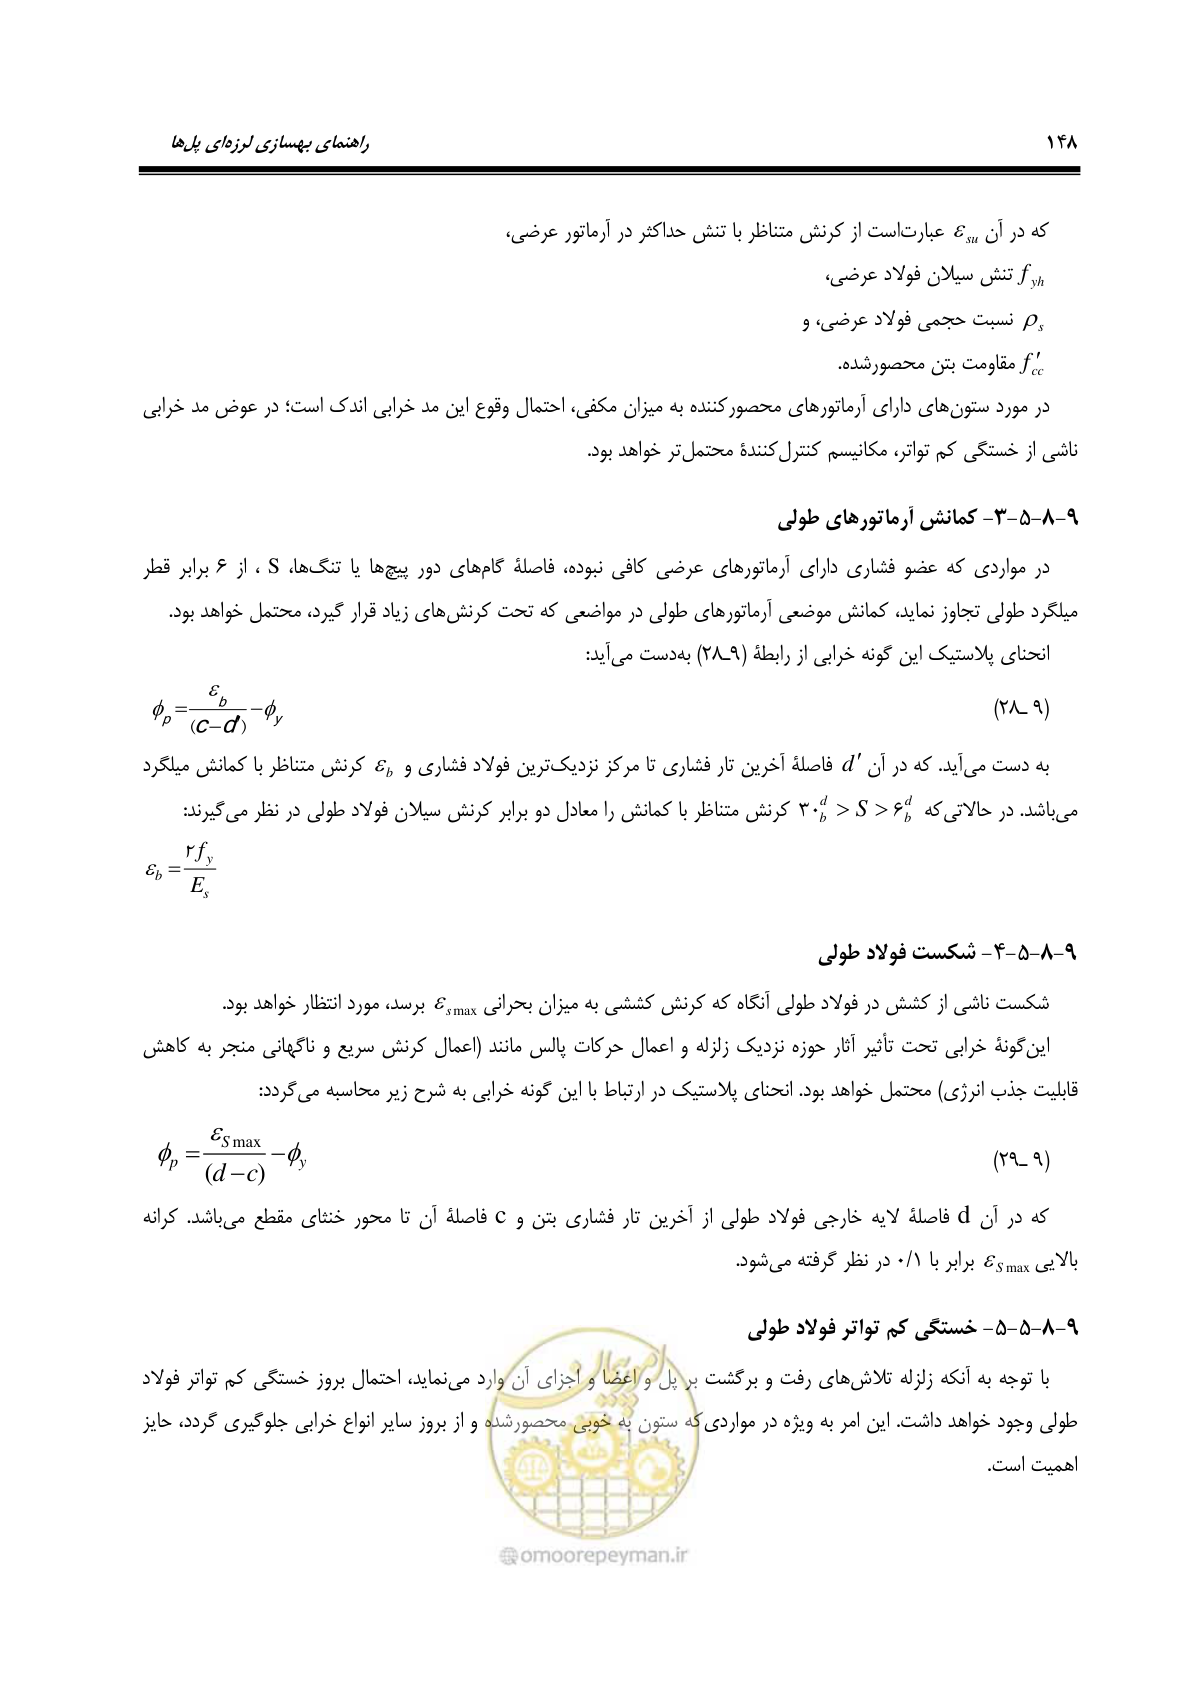 ۱۴۸ راهنمای بهسازی لرزه‌ای پل‌ها
که در آن ε_su عبارت‌است از کرنش متناظر با تنش حداکثر در آرماتور عرضی،
f_yh تنش سیلان فولاد عرضی،
ρ_s نسبت حجمی فولاد عرضی، و
f′_cc مقاومت بتن محصورشده.
در مورد ستون‌های دارای آرماتورهای محصورکننده به میزان مکفی، احتمال وقوع این مد خرابی اندک است؛ در عوض مد خرابی
ناشی از خستگی کم تواتر، مکانیسم کنترل‌کنندهٔ محتمل‌تر خواهد بود.
۹-۸-۵-۳- کمانش آرماتورهای طولی
در مواردی که عضو فشاری دارای آرماتورهای عرضی کافی نبوده، فاصلهٔ گام‌های دور پیچ‌ها یا تنگ‌ها، S ، از ۶ برابر قطر
میلگرد طولی تجاوز نماید، کمانش موضعی آرماتورهای طولی در مواضعی که تحت کرنش‌های زیاد قرار گیرد، محتمل خواهد بود.
انحنای پلاستیک این گونه خرابی از رابطهٔ (۹ـ۲۸) به‌دست می‌آید:
(۹ ـ۲۸) φ_p = ε_b / (c−d′) − φ_y
به دست می‌آید. که در آن d′ فاصلهٔ آخرین تار فشاری تا مرکز نزدیک‌ترین فولاد فشاری و ε_b کرنش متناظر با کمانش میلگرد
می‌باشد. در حالاتی‌که ۳۰_b^d > S > ۶_b^d کرنش متناظر با کمانش را معادل دو برابر کرنش سیلان فولاد طولی در نظر می‌گیرند:
ε_b = ۲f_y / E_s
۹-۸-۵-۴- شکست فولاد طولی
شکست ناشی از کشش در فولاد طولی آنگاه که کرنش کششی به میزان بحرانی ε_s max برسد، مورد انتظار خواهد بود.
این‌گونهٔ خرابی تحت تأثیر آثار حوزه نزدیک زلزله و اعمال حرکات پالس مانند (اعمال کرنش سریع و ناگهانی منجر به کاهش
قابلیت جذب انرژی) محتمل خواهد بود. انحنای پلاستیک در ارتباط با این گونه خرابی به شرح زیر محاسبه می‌گردد:
(۹ ـ۲۹) φ_p = ε_S max / (d − c) − φ_y
که در آن d فاصلهٔ لایه خارجی فولاد طولی از آخرین تار فشاری بتن و c فاصلهٔ آن تا محور خنثای مقطع می‌باشد. کرانه
بالایی ε_S max برابر با ۰/۱ در نظر گرفته می‌شود.
۹-۸-۵-۵- خستگی کم تواتر فولاد طولی
با توجه به آنکه زلزله تلاش‌های رفت و برگشت بر پل و اعضا و اجزای آن وارد می‌نماید، احتمال بروز خستگی کم تواتر فولاد
طولی وجود خواهد داشت. این امر به ویژه در مواردی‌که ستون به خوبی محصورشده و از بروز سایر انواع خرابی جلوگیری گردد، حایز
اهمیت است.
امور پیمان
@omoorepeyman.ir